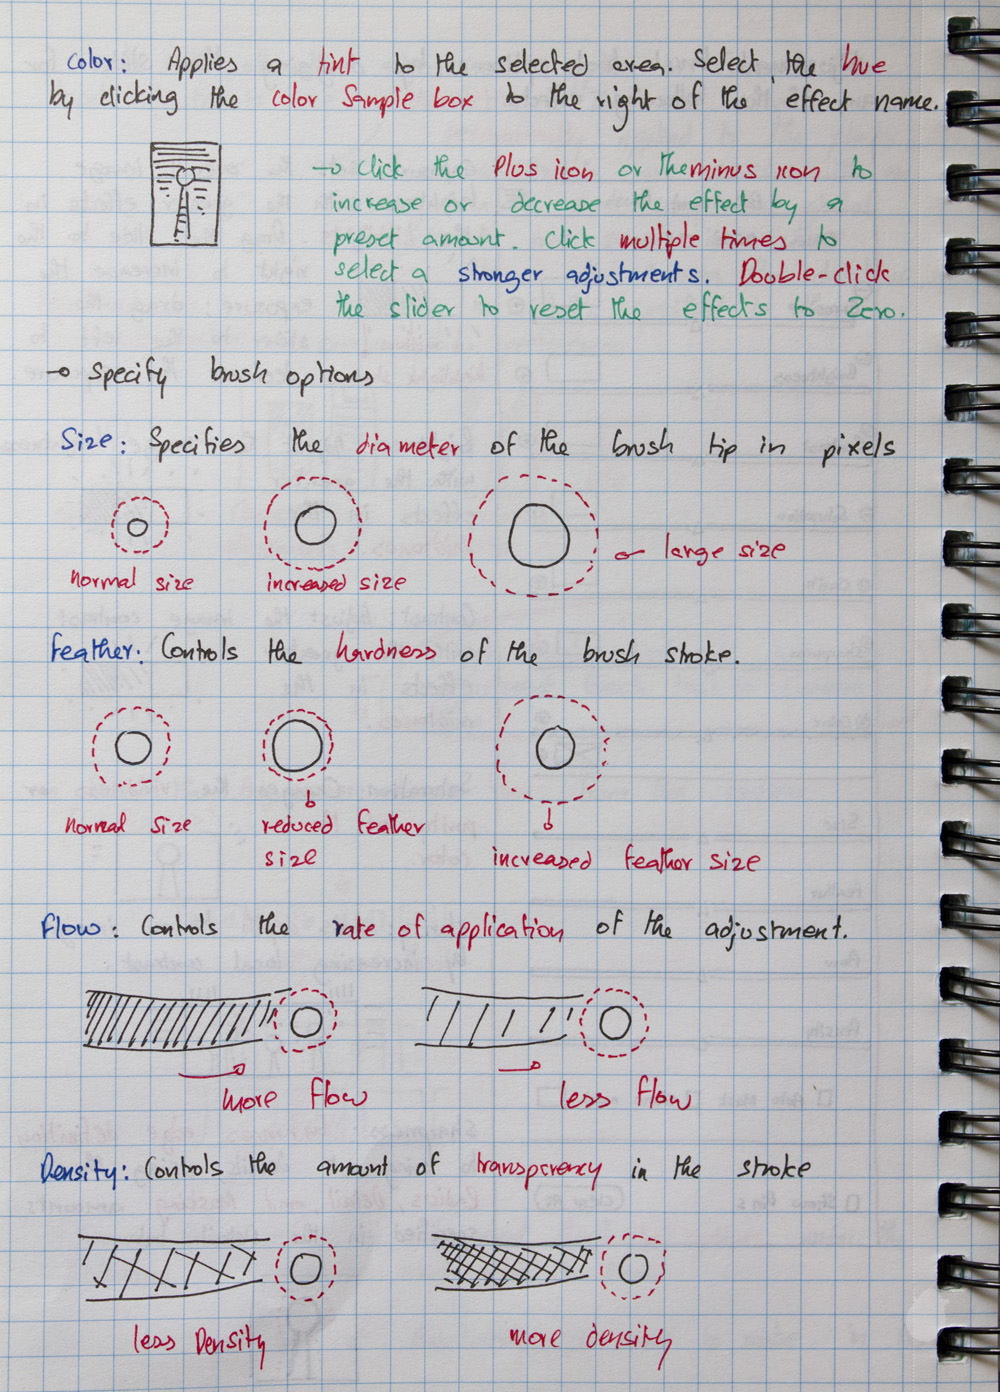 Color: Applies a tint to the selected area. Select the hue
by clicking the color Sample box to the right of the effect name.
→ Click the Plus icon or the minus icon to
increase or decrease the effect by a
preset amount. Click multiple times to
select a stronger adjustments. Double-click
the slider to reset the effects to Zero.
→ Specify brush options
Size: Specifies the diameter of the brush tip in pixels
normal size
increased size
large size
Feather: Controls the hardness of the brush stroke.
normal size
reduced feather
size
increased feather size
Flow: Controls the rate of application of the adjustment.
more flow
less flow
Density: Controls the amount of transparency in the stroke
less Density
more density